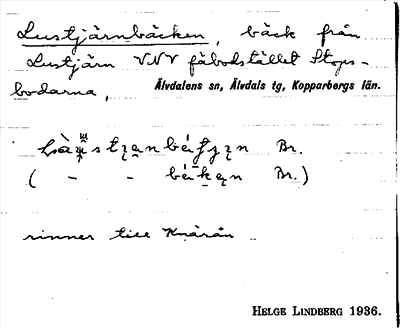 Lustjärnbäcken, bäck från
Lustjärn VNV fäbodstället Stops-
bodarna, Älvdalens sn, Älvdals tg, Kopparbergs län.
Br.
( - - Br.)
rinner till Knärån
HELGE LINDBERG 1936.